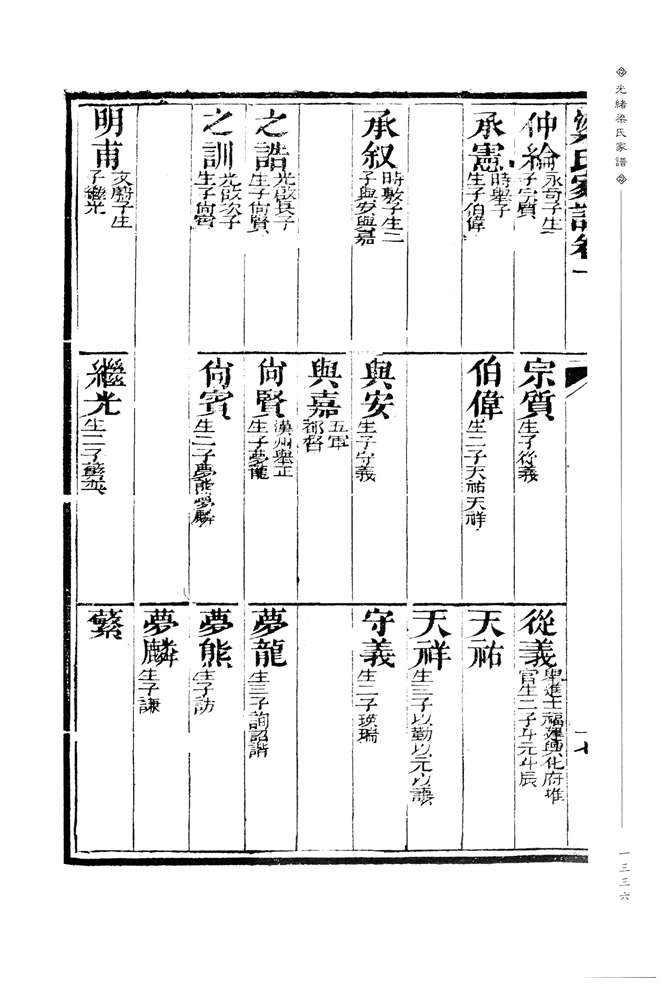 光緒梁氏家譜
梁氏家譜卷一
十七
仲綸 永奇子生子宗質
承憲 時舉子生子伯偉
承叙 時敷子生二子與安與嘉
之誥 光啟長子生子尙賢
之訓 光啟次子生子尙賓
明甫 文蔚子生子繼光
宗質 生子從義
伯偉 生二子天祐天祥
與安 生子守義
與嘉 五軍都督
尙賢 漢州學正生子夢龍
尙賓 生二子夢熊夢麟
繼光 生二子繁英
從義 舉進士福建興化府推官生二子斗元斗辰
天祐
天祥 生三子以勤以元以語
守義 生二子瑛瑞
夢龍 生三子詢詔諧
夢熊 生子訪
夢麟 生子謙
繁
一三三六